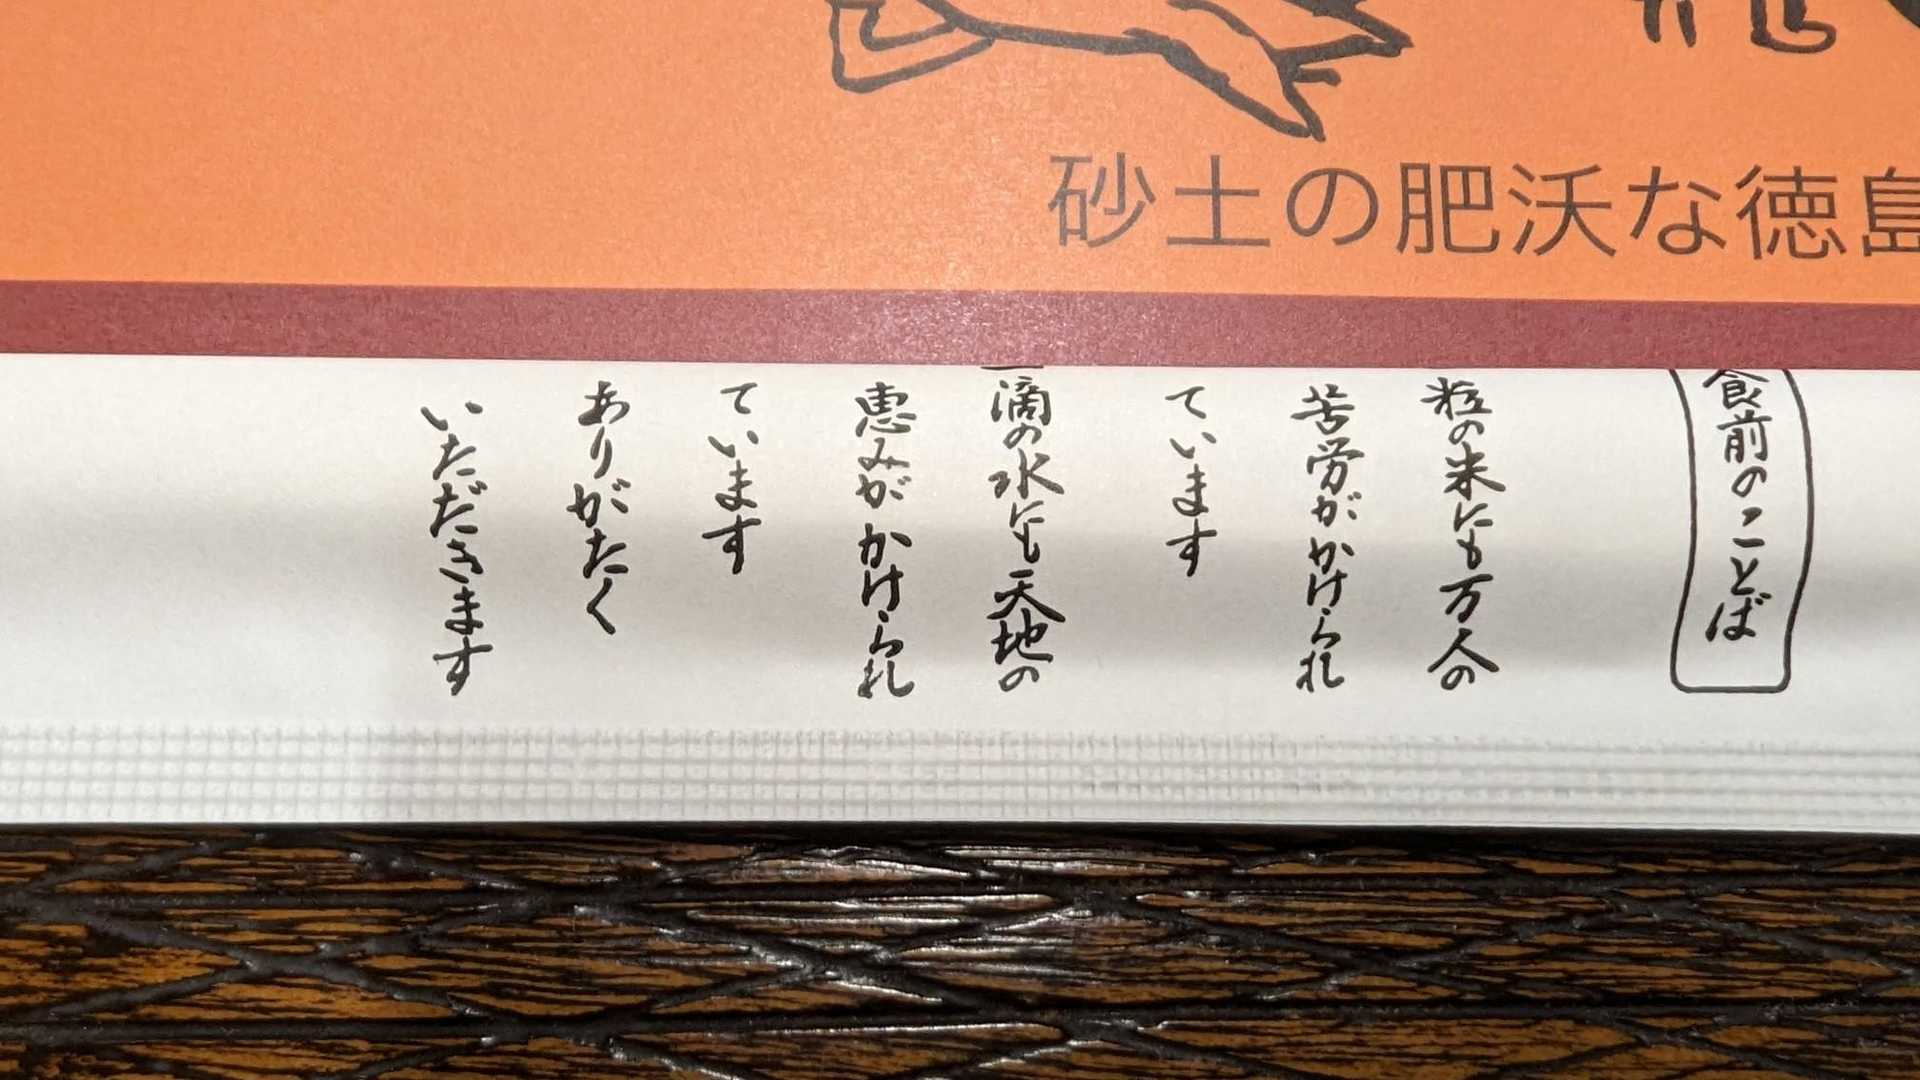 砂土の肥沃な徳島
食前のことば
粒の米にも万人の
苦労がかけられ
ています
一滴の水にも天地の
恵みがかけられ
ています
ありがたく
いただきます